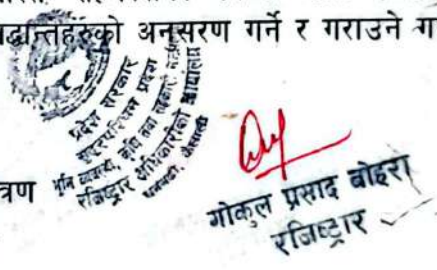 द्धान्तहरुको अनुसरण गर्ने र गराउने
प्रदेश सरकार
सुदूरपश्चिम प्रदेश
भूमि व्यवस्था, कृषि तथा सहकारी
रजिष्ट्रार
धनगढी, कैलाली
त्रण
गोकुल प्रसाद बोहरा
रजिष्ट्रार